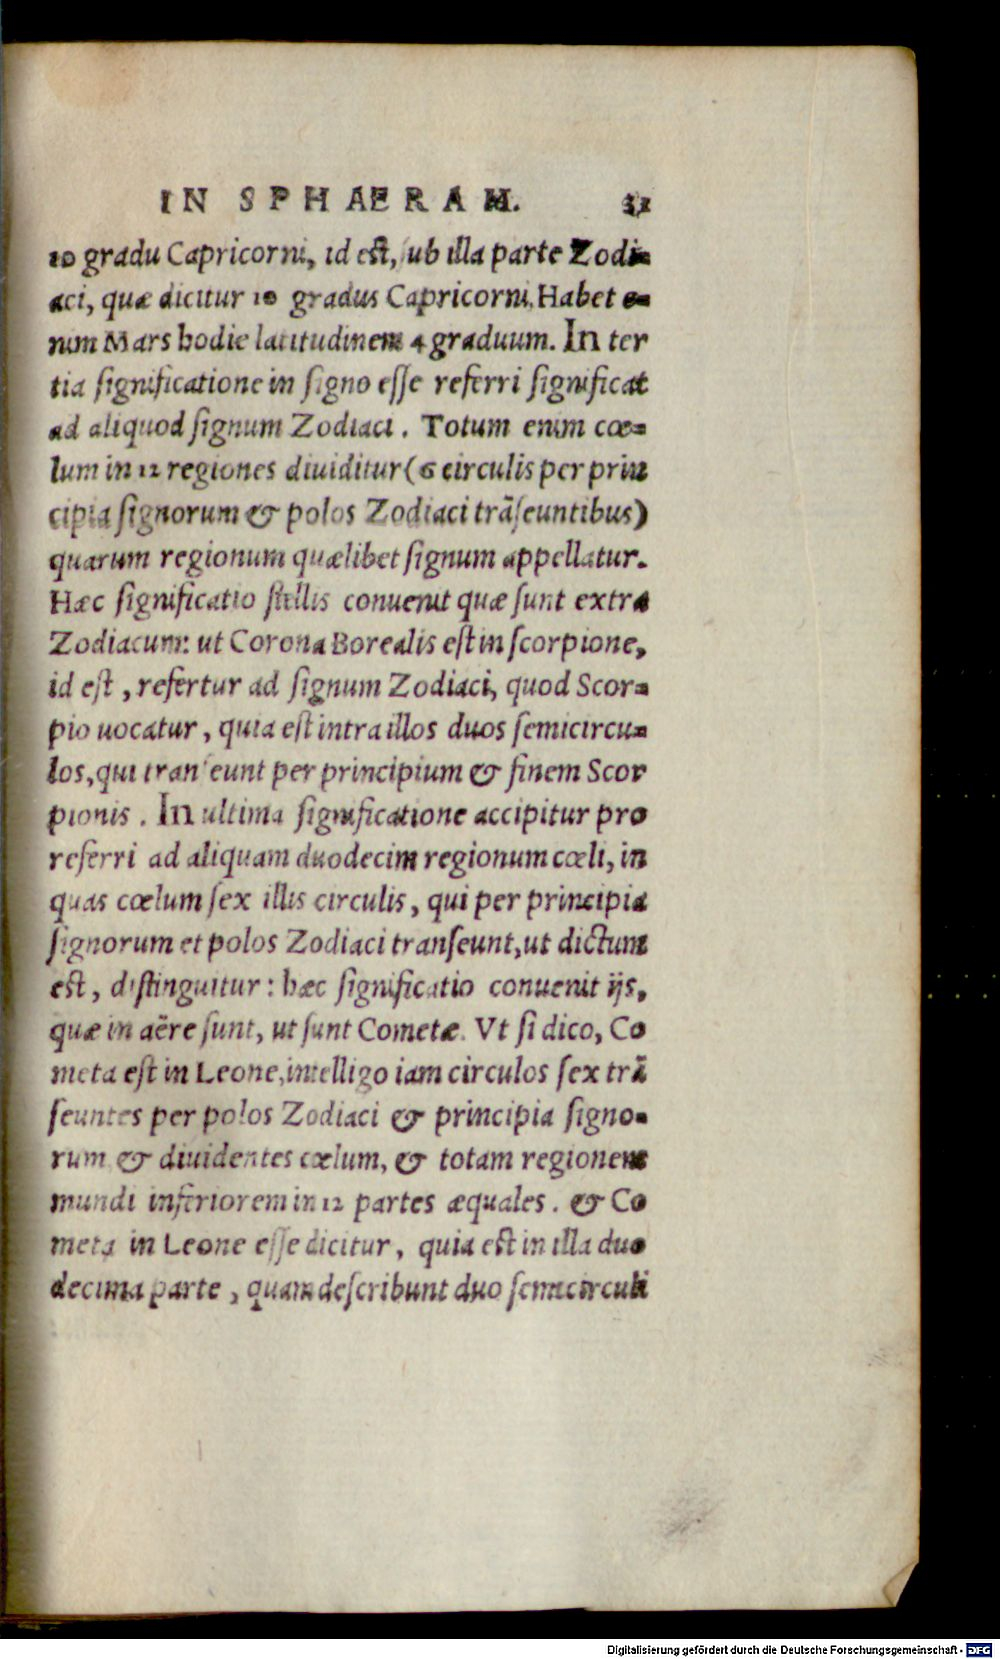 IN SPHAERAM. 31
10 gradu Capricorni, id est, ſub illa parte Zodi-
aci, quæ dicitur 10 gradus Capricorni. Habet e-
nim Mars hodie latitudinem 4 graduum. In ter
tia ſignificatione in ſigno eſſe referri ſignificat
ad aliquod ſignum Zodiaci. Totum enim cœ-
lum in 12 regiones diuiditur (6 circulis per prin
cipia ſignorum & polos Zodiaci trãſeuntibus)
quarum regionum quælibet ſignum appellatur.
Hæc ſignificatio ſtellis conuenit quæ ſunt extra
Zodiacum: ut Corona Borealis eſt in ſcorpione,
id eſt, refertur ad ſignum Zodiaci, quod Scor-
pio uocatur, quia eſt intra illos duos ſemicircu-
los, qui tranſeunt per principium & finem Scor
pionis. In ultima ſignificatione accipitur pro
referri ad aliquam duodecim regionum cœli, in
quas cœlum ſex illis circulis, qui per principia
ſignorum et polos Zodiaci tranſeunt, ut dictum
est, diſtinguitur: hæc ſignificatio conuenit ijs,
quæ in aëre ſunt, ut ſunt Cometæ. Vt ſi dico, Co
meta eſt in Leone, intelligo iam circulos ſex trã
ſeuntes per polos Zodiaci & principia ſigno-
rum & diuidentes cœlum, & totam regionem
mundi inferiorem in 12 partes æquales. & Co
meta in Leone eſſe dicitur, quia est in illa duo
decima parte, quam deſcribunt duo ſemicirculi
Digitalisierung gefördert durch die Deutsche Forschungsgemeinschaft - DFG